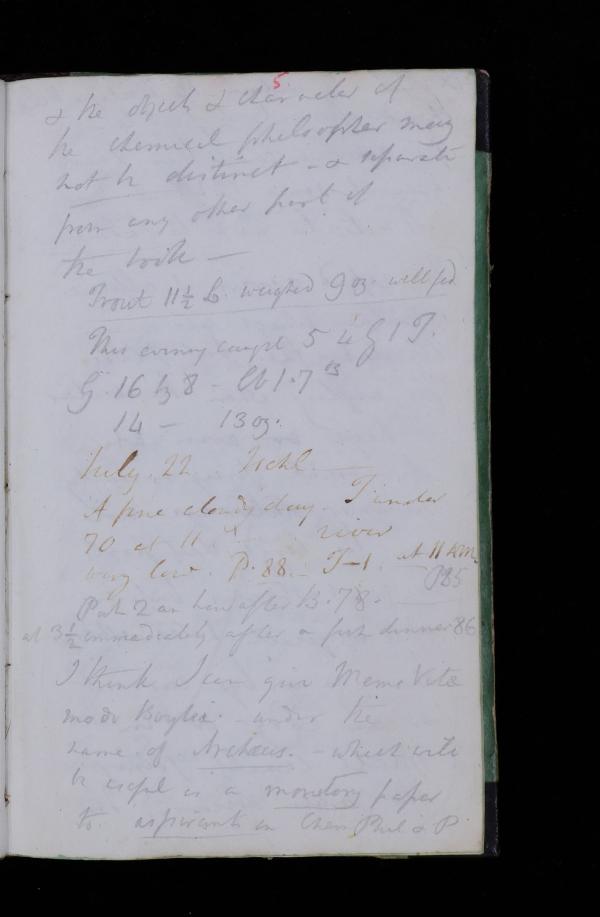 5
& the objects & character of
the chemical philosopher may
not be distinct - & separate
from any other part of
the book —
Trout 11½ L. weighed 9 oz. well fed
This evening caught 5 4 G 1 T.
G. 16 by 8 - lb 1. 7 oz
14 - 13 oz.
July. 22. Ischl. —
A fine cloudy day. T under
70 at 11. river
very low. P. 88. T-1. at 11 A.M.
P85
P at 2 an hour after B. 78.
at 3½ immediately after a fish dinner 86
I think I can give Meme Vitæ
modo Boyliæ. under the
name of Archæus. - which will
be useful as a monitory paper
to aspirants in Chem Phil & P